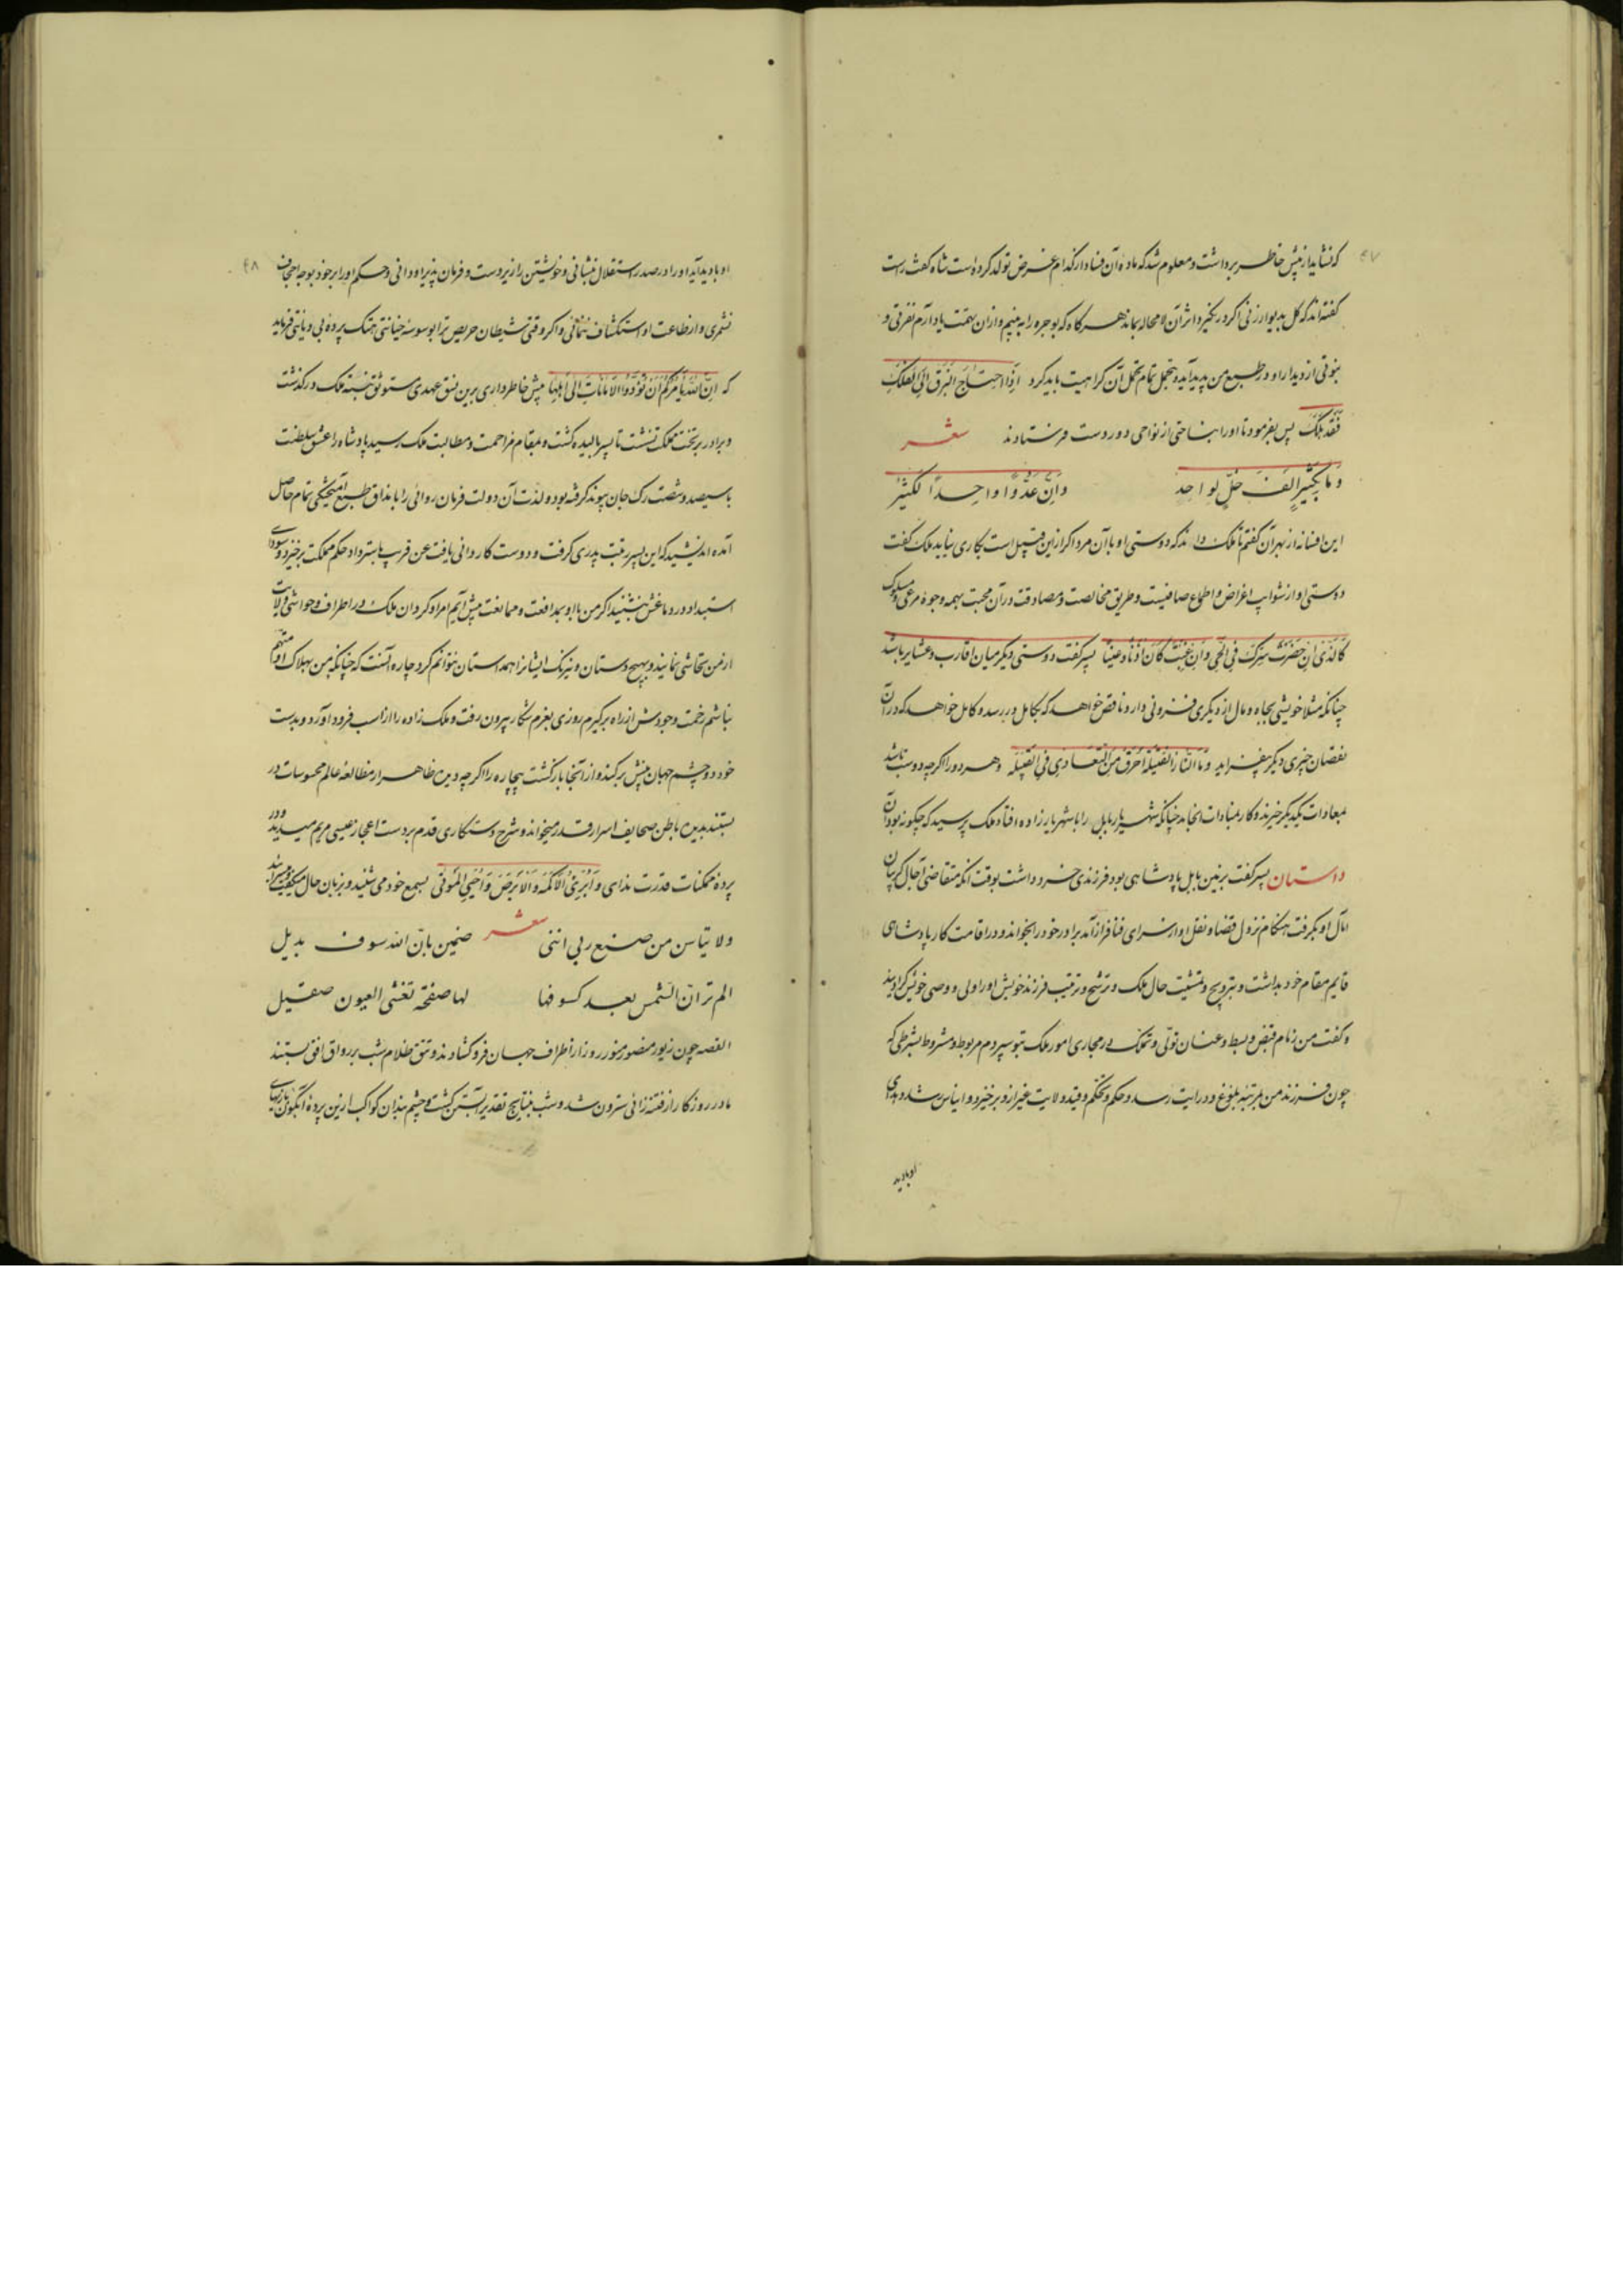 ٤٧
که نشاید از پیش خاطر برداشت و معلوم شد که ماده آن فساد از کدام غرض تولد کرده است شاه گفت راست
گفته اند که گل بدیوار زنی اگر در نگیرد اثر آن لامحاله بماند هر گاه که بوجره را به بینم و ازان تهمت یاد آرم نفرتی و
نبوتی از دیدار او در طبیع من پدید آید و بتجمل تمام تحمل آن کراهیت باید کرد اِذَا احتاجَ الزق الی الفلک
فقد هلک پس بفرمود تا او را بناحتی از نواحی دور دست فرستادند شعر
وَ ما بِکَثیرٍ اَلفُ خِلٍّ لواحِدٍ وَ اِنَّ عَدُوًّا واحِدًا لَکَثیرُ
این افسانه از بهر آن گفتم تا ملک داند که دوستی او با آن مرد اگر ازین قبیل است بکاری نیاید ملک گفت
دوستی او از شوایب اغراض و اطماع صافیست و طریق مخالصت و مصادقت در آن محبت بهمه وجوه مرعی و مسلوک
کَالَّذی اِن حَضَرتَ سَرَّکَ فِی الحَیِّ وَ اِن غِبتَ کانَ اُذنًا وَ عَینًا پسر گفت دوستی دیگر میان اقارب و عشایر باشد
چنانکه مثلا خویشی بجاه و مال از دیگری فزونی دارد و ناقص خواهد که بکامل در رسد و کامل خواهد که در آن
نقصان چیزی دیگر بیفزاید وَ مَا النّارُ للفتیلة اَحرَقُ مِنَ التَّعادی فِی القَبیلَه و هر دو را اگر چه دوست باشند
بمعادات یکدیگر خیزند و کار بمنادات انجامد چنانکه شهریار بابل را با شهریار زاده افتاد ملک پرسید که چگونه بود آن
داستان پسر گفت بزمین بابل پادشاهی بود فرزندی خرد داشت بوقت آنکه متقاضی آجال گریبان
آمال او بگرفت هنگام نزول قضا و نقل او از سرای فنا فراز آمد برادر خود را بخواند و در اقامت کار پادشاهی
قایم مقام خود بداشت و بترویج و تمشیت حال ملک و ترشیح و ترتیب فرزند خویش او را ولی و وصی خویش گردانید
و گفت من زمام قبض و بسط و عنان تولی و تملک در مجاری امور ملک بتو سپردم مربوط و مشروط بشرطی که
چون فرزند من بمرتبه بلوغ و درایت رسد و حکم و تحکم و قید ولایت غیر ازو برخیزد و ایناس رشد و هدی
او بادید
٤٨
او بادید آید او را در صدر استقلال بنشانی و خویشتن را زیردست و فرمان پذیر او دانی و حکم او را بر خود بوجه اجحاف
نشمری و از طاعت او استنکاف ننمائی و اگر وقتی شیطان حریص ترا بوسوسه خیانتی هتک پرده بی دیانتی فرماید
که اِنَّ اللهَ یَأمُرُکُم اَن تُؤَدُّوا الاَماناتِ اِلی اَهلِها پیش خاطر داری برین نسق عهدی مستوثق ببست ملک درگذشت
و برادر بر تخت مملکت نشست تا پسر بالیده گشت و بمقام مزاحمت و مطالبت ملک رسید پادشاه را عشق سلطنت
با سیصد و شصت رگ جان پیوند گرفته بود و لذت آن دولت فرمان روائی را با مذاق طبیع آمیختگی تمام حاصل
آمده اندیشید که این پسر رقبت پدری گرفت و دوست کاروانی یافت عن قریب باسترداد حکم مملکت برخیزد و سودای
استبداد در دماغش بنشیند اگر من با او بمدافعت و ممانعت پیش آیم امرا و گردان ملک در اطراف و حواشی ولایت
از من تحاشی نمایند و بهیچ دستان و نیرنگ ایشانرا همداستان نتوانم کرد چاره آنست که چنانکه من بهلاک او متهم
نباشم رخت وجودش از راه برگیرم روزی بعزم شکار بیرون رفت و ملک زاده را از اسب فرود آورد و بدست
خود دو چشم جهان بینش برکند و از آنجا بازگشت بیچاره را اگرچه دیده ظاهر از مطالعه عالم محسوسات در
بستند بدیده باطن صحایف اسرار قدر میخواند و شرح دستکاری قدم بر دست اعجاز عیسی مریم میدید و در
پرده ممکنات قدرت ندای وَ اُبرِئُ الاَکمَهَ وَ الاَبرَصَ وَ اُحیِی المَوتی بسمع خود می شنید و بزبان حال میگفت
شعر
ولا تیاسن من صنع ربی اننی ضمین بان الله سوف یدیل
الم تر ان الشمس بعد کسوفها لها صفحة تغشی العیون صقیل
القصه چون زیور منصور منور روز از اطراف جهان فرو گشادند و تتق ظلام شب بر رواق افق بستند
مادر روزگار از فتنه زائی سترون شد و شب بنتایج تقدیر آبستن گشت و چشم بندان کواکب ازین پرده آبگون